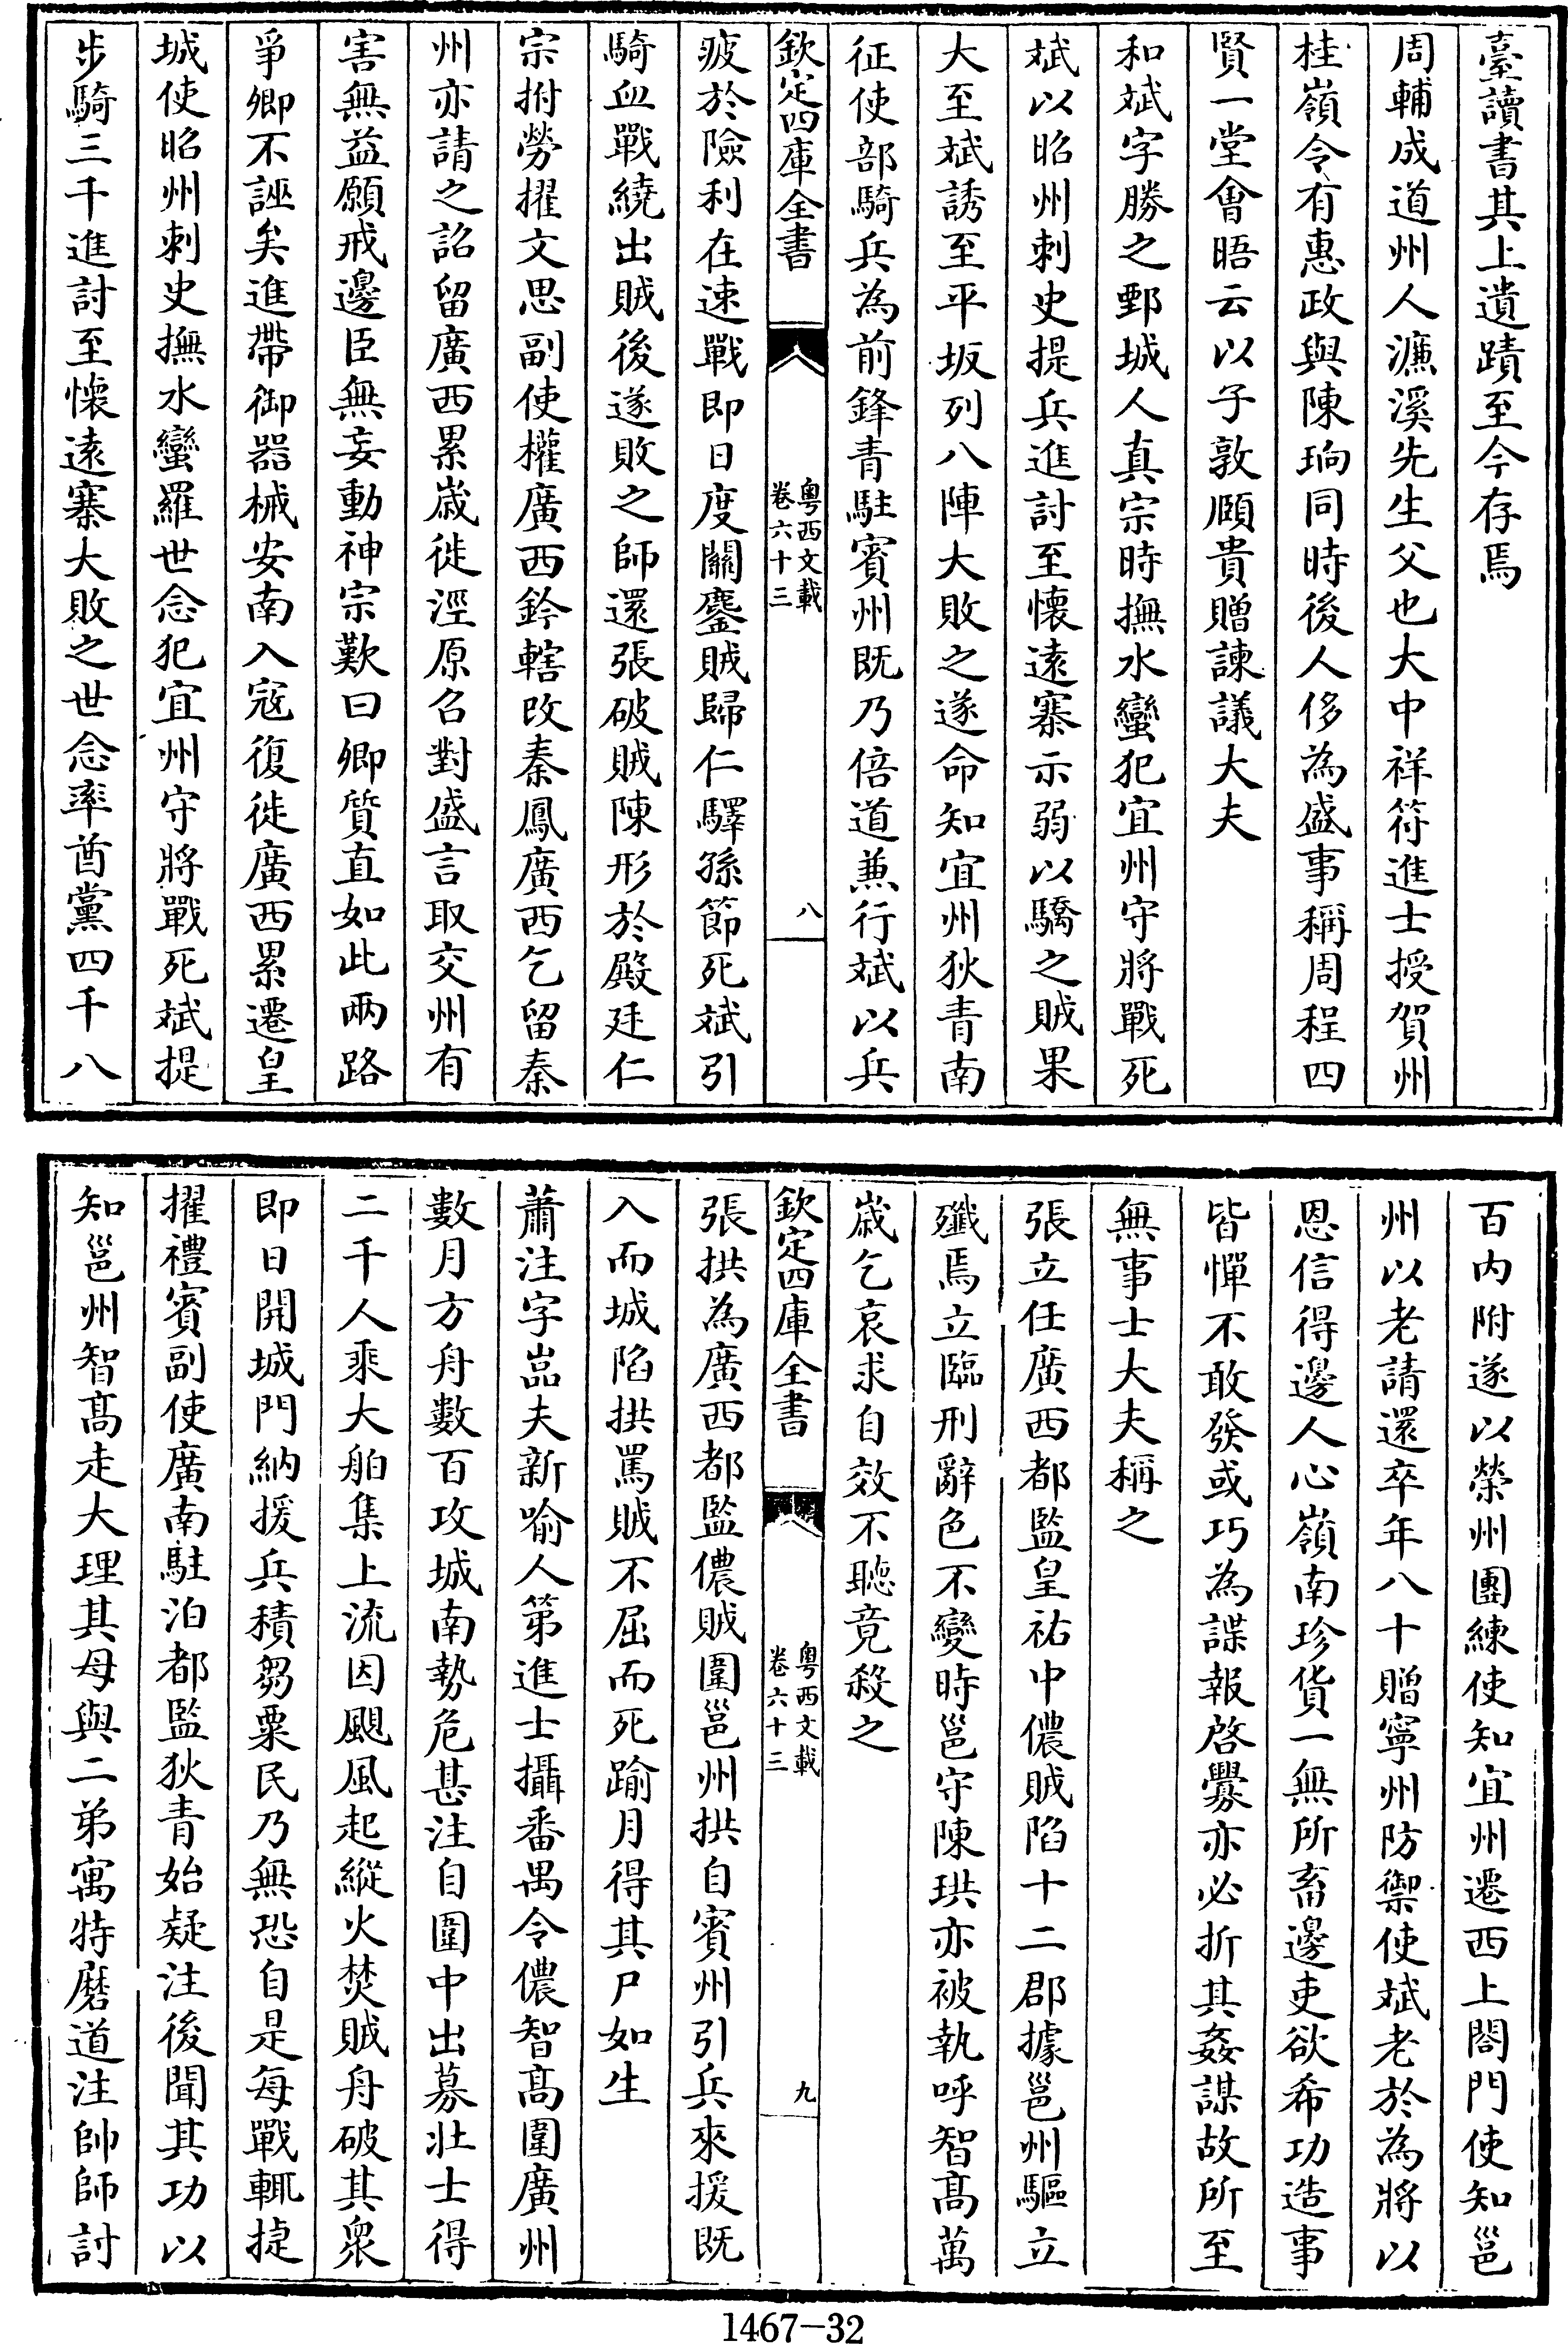 臺讀書其上遺蹟至今存焉
周輔成道州人濂溪先生父也大中祥符進士授賀州
桂嶺令有惠政與陳珦同時後人侈為盛事稱周程四
賢一堂會晤云以子敦頤貴贈諫議大夫
和斌字勝之鄄城人真宗時撫水蠻犯宜州守將戰死
斌以昭州刺史提兵進討至懷遠寨示弱以驕之賊果
大至斌誘至平坂列八陣大敗之遂命知宜州狄青南
征使部騎兵為前鋒青駐賓州既乃倍道兼行斌以兵
欽定四庫全書
粵西文載
卷六十三
八
疲於險利在速戰即日度關鏖賊歸仁驛孫節死斌引
騎血戰繞出賊後遂敗之師還張破賊陳形於殿廷仁
宗拊勞擢文思副使權廣西鈐轄改秦鳳廣西乞留秦
州亦請之詔留廣西累歲徙涇原召對盛言取交州有
害無益願戒邊臣無妄動神宗歎曰卿質直如此兩路
爭卿不誣矣進帶御器械安南入寇復徙廣西累遷皇
城使昭州刺史撫水蠻羅世念犯宜州守將戰死斌提
步騎三千進討至懷遠寨大敗之世念率酋黨四千八
百內附遂以榮州團練使知宜州遷西上閤門使知邕
州以老請還卒年八十贈寧州防禦使斌老於為將以
恩信得邊人心嶺南珍貨一無所畜邊吏欲希功造事
皆憚不敢發或巧為諜報啓釁亦必折其姦謀故所至
無事士大夫稱之
張立任廣西都監皇祐中儂賊陷十二郡據邕州驅立
殲焉立臨刑辭色不變時邕守陳珙亦被執呼智高萬
歲乞哀求自效不聽竟殺之
欽定四庫全書
粵西文載
卷六十三
九
張拱為廣西都監儂賊圍邕州拱自賓州引兵來援既
入而城陷拱罵賊不屈而死踰月得其尸如生
蕭注字嵓夫新喻人第進士攝番禺令儂智高圍廣州
數月方舟數百攻城南勢危甚注自圍中出募壯士得
二千人乘大舶集上流因颶風起縱火焚賊舟破其衆
即日開城門納援兵積芻粟民乃無恐自是每戰輒捷
擢禮賓副使廣南駐泊都監狄青始疑注後聞其功以
知邕州智高走大理其母與二弟寓特磨道注帥師討
1467-32